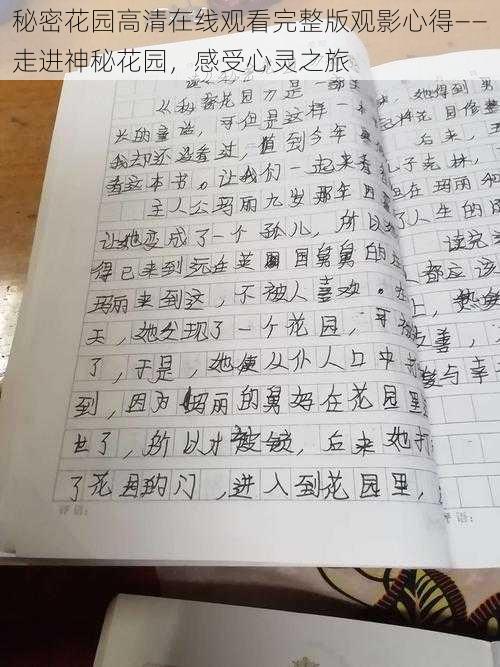 秘密花园高清在线观看完整版观影心得——
走进神秘花园，感受心灵之旅
《秘密花园》是一部
长的童话，可但是这样一
我却还没看过，直到今年
看这本书。让我们一起来看
主人公玛丽九岁那年因
让她变成了一个孤儿，所以
得已来到远在英国国舅舅的
玛丽来到这，不被人喜欢。在
天，她发现了一个花园，可
了，于是，她便从仆人口中
到，因为玛丽的舅好在花园里
世了，所以才被锁，后来她打
了花园的门，进入到花园里，
评语：
来，她得到
后来，
儿子克林，
且在玛丽和
了人生的
读完
都应该
上，热
善，
爱与幸
评语：